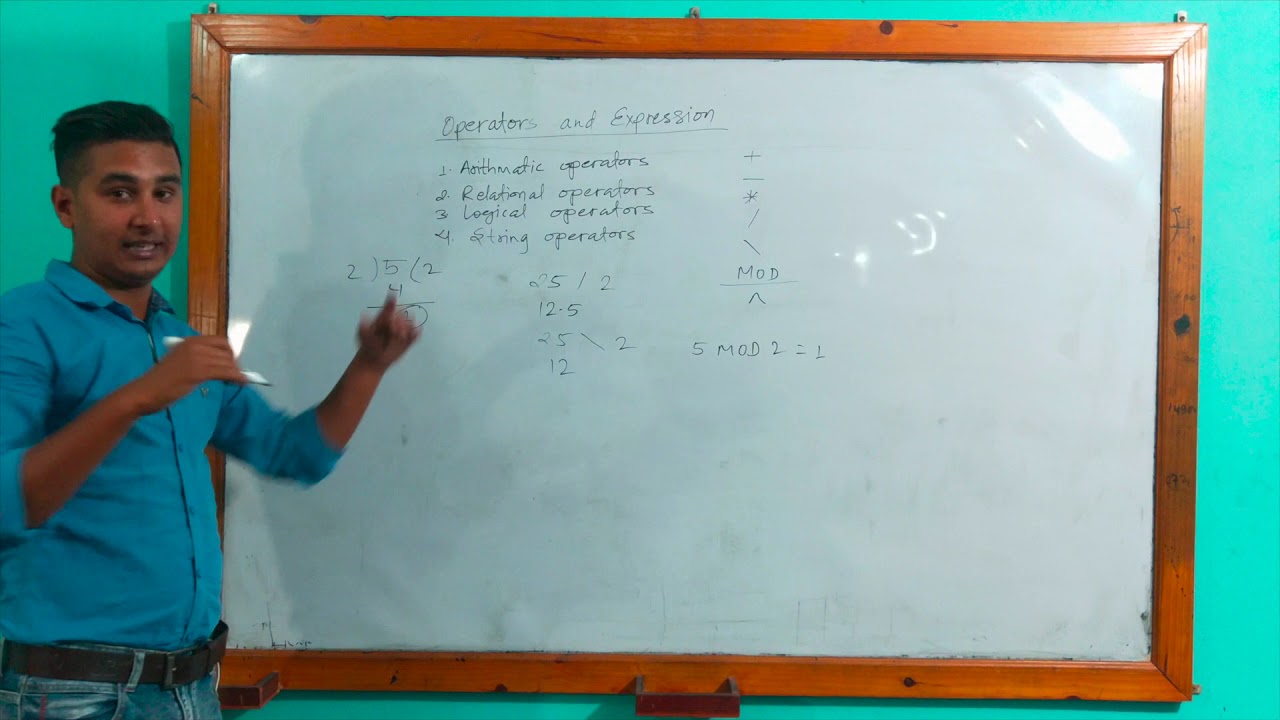 Operators and Expression
1. Arithmatic operators
2. Relational operators
3 Logical operators
4. String operators
+
−
*
/
\
MOD
^
2 ) 5 ( 2
4
1
25 / 2
12.5
25 \ 2
12
5 MOD 2 = 1